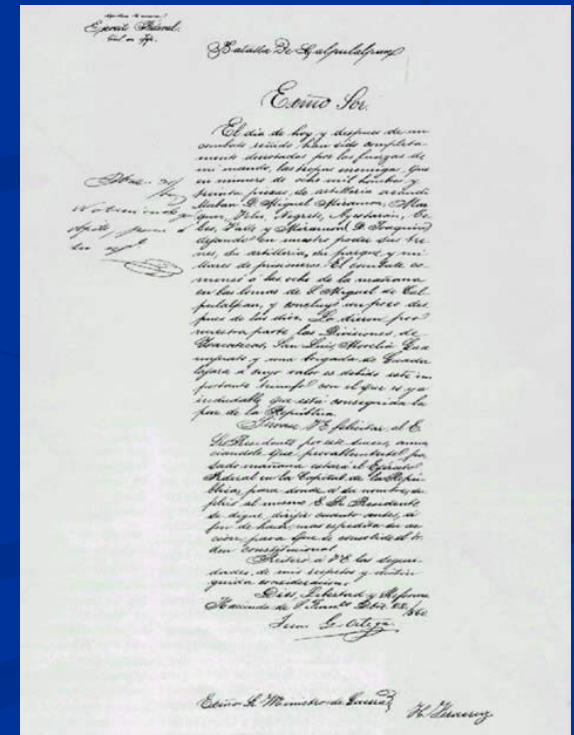 Ejército Federal.
Batalla De Calpulalpan
Exmo Sor.
El dia de hoy y despues de un
combate reñido, han sido completa-
mente derrotadas por las fuerzas de
mi mando, las tropas enemigas, que
en numero de ocho mil hombres y
treinta piezas de artilleria acaudi
llaban D. Miguel Miramon, Mar
quez, Velez, Negrete, Ayestarán, Co
bos, Valle y Miramon D. Joaquin
dejando en nuestro poder sus tre
nes, su artilleria, su parque, y mi
llares de prisioneros. El combate co
menzó a las ocho de la mañana
en las lomas de S. Miguel de Cal
pulalpan, y concluyó un poco des
pues de las diez. Lo dieron por
nuestra parte las Divisiones, de
Zacatecas, San Luis, Morelia Gua
najuato, y una brigada de Guada
lajara á cuyo valor es debido este im
portante triunfo con el que es ya
indudable que está conseguida la
paz de la República.
Sirvase VE felicitar al E.
Sr Presidente por este suceso, anun
ciandole que
sado mañana estará el Ejército
Federal en la Capital de la Repú
blica, para donde á su nombre, su
plico al mismo E. Sr. Presidente
se digne dirigir cuanto antes, á
fin de hacer mas espedita su ac
cion, para que se consolide el ór
den constitucional.
Reitero á VE las seguri-
dades, de mis respetos y distin
guida consideracion.
Dios, Libertad y Reforma
Hacienda de S. Franco Dbre. 22/860
Jesus G. Ortega
Exmo Sr. Ministro de Guerra
H. Veracruz